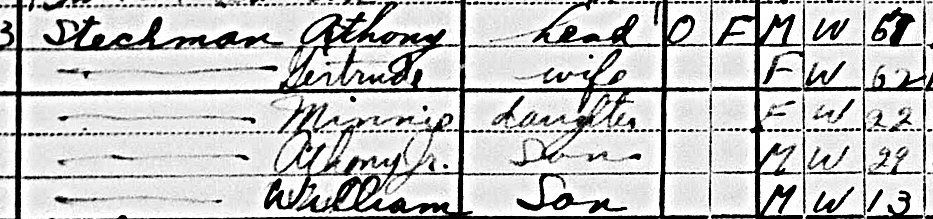 3 Stechman Athony head O F M W 61
Gertrude wife F W 62
Minnie daughter F W 22
Athony Jr. Son M W 29
William Son M W 13